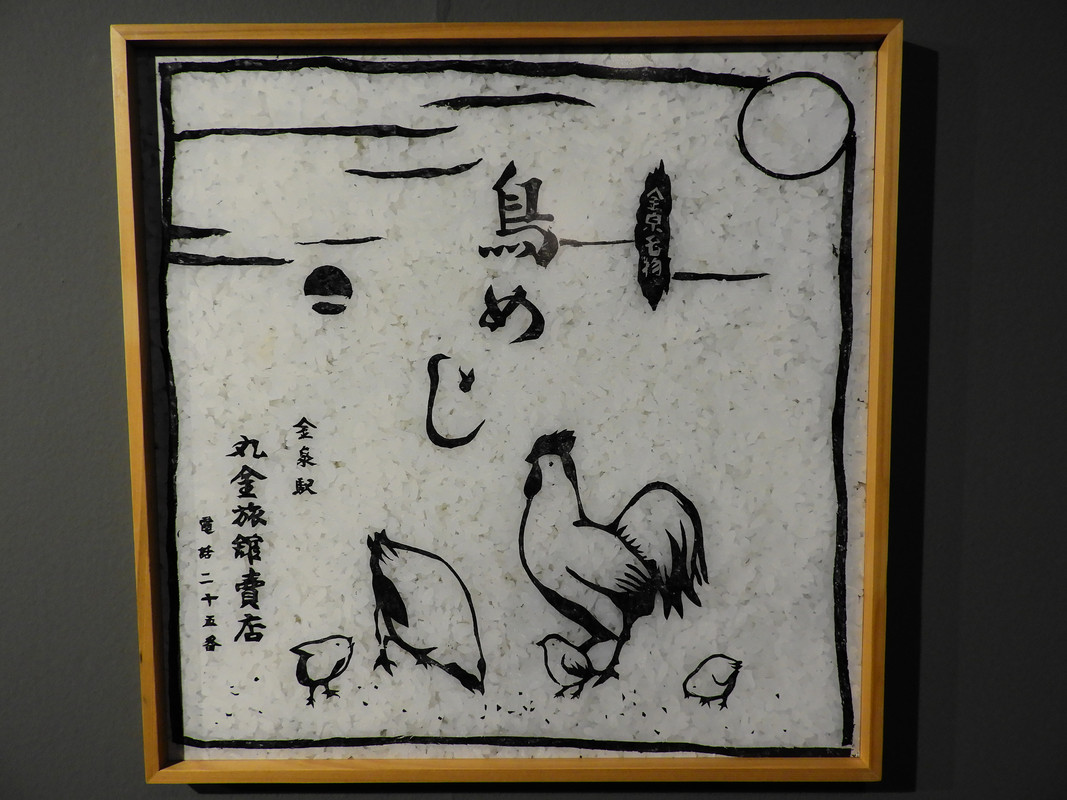 金泉名物
鳥めし
金泉駅
丸金旅館賣店
電話二十五番